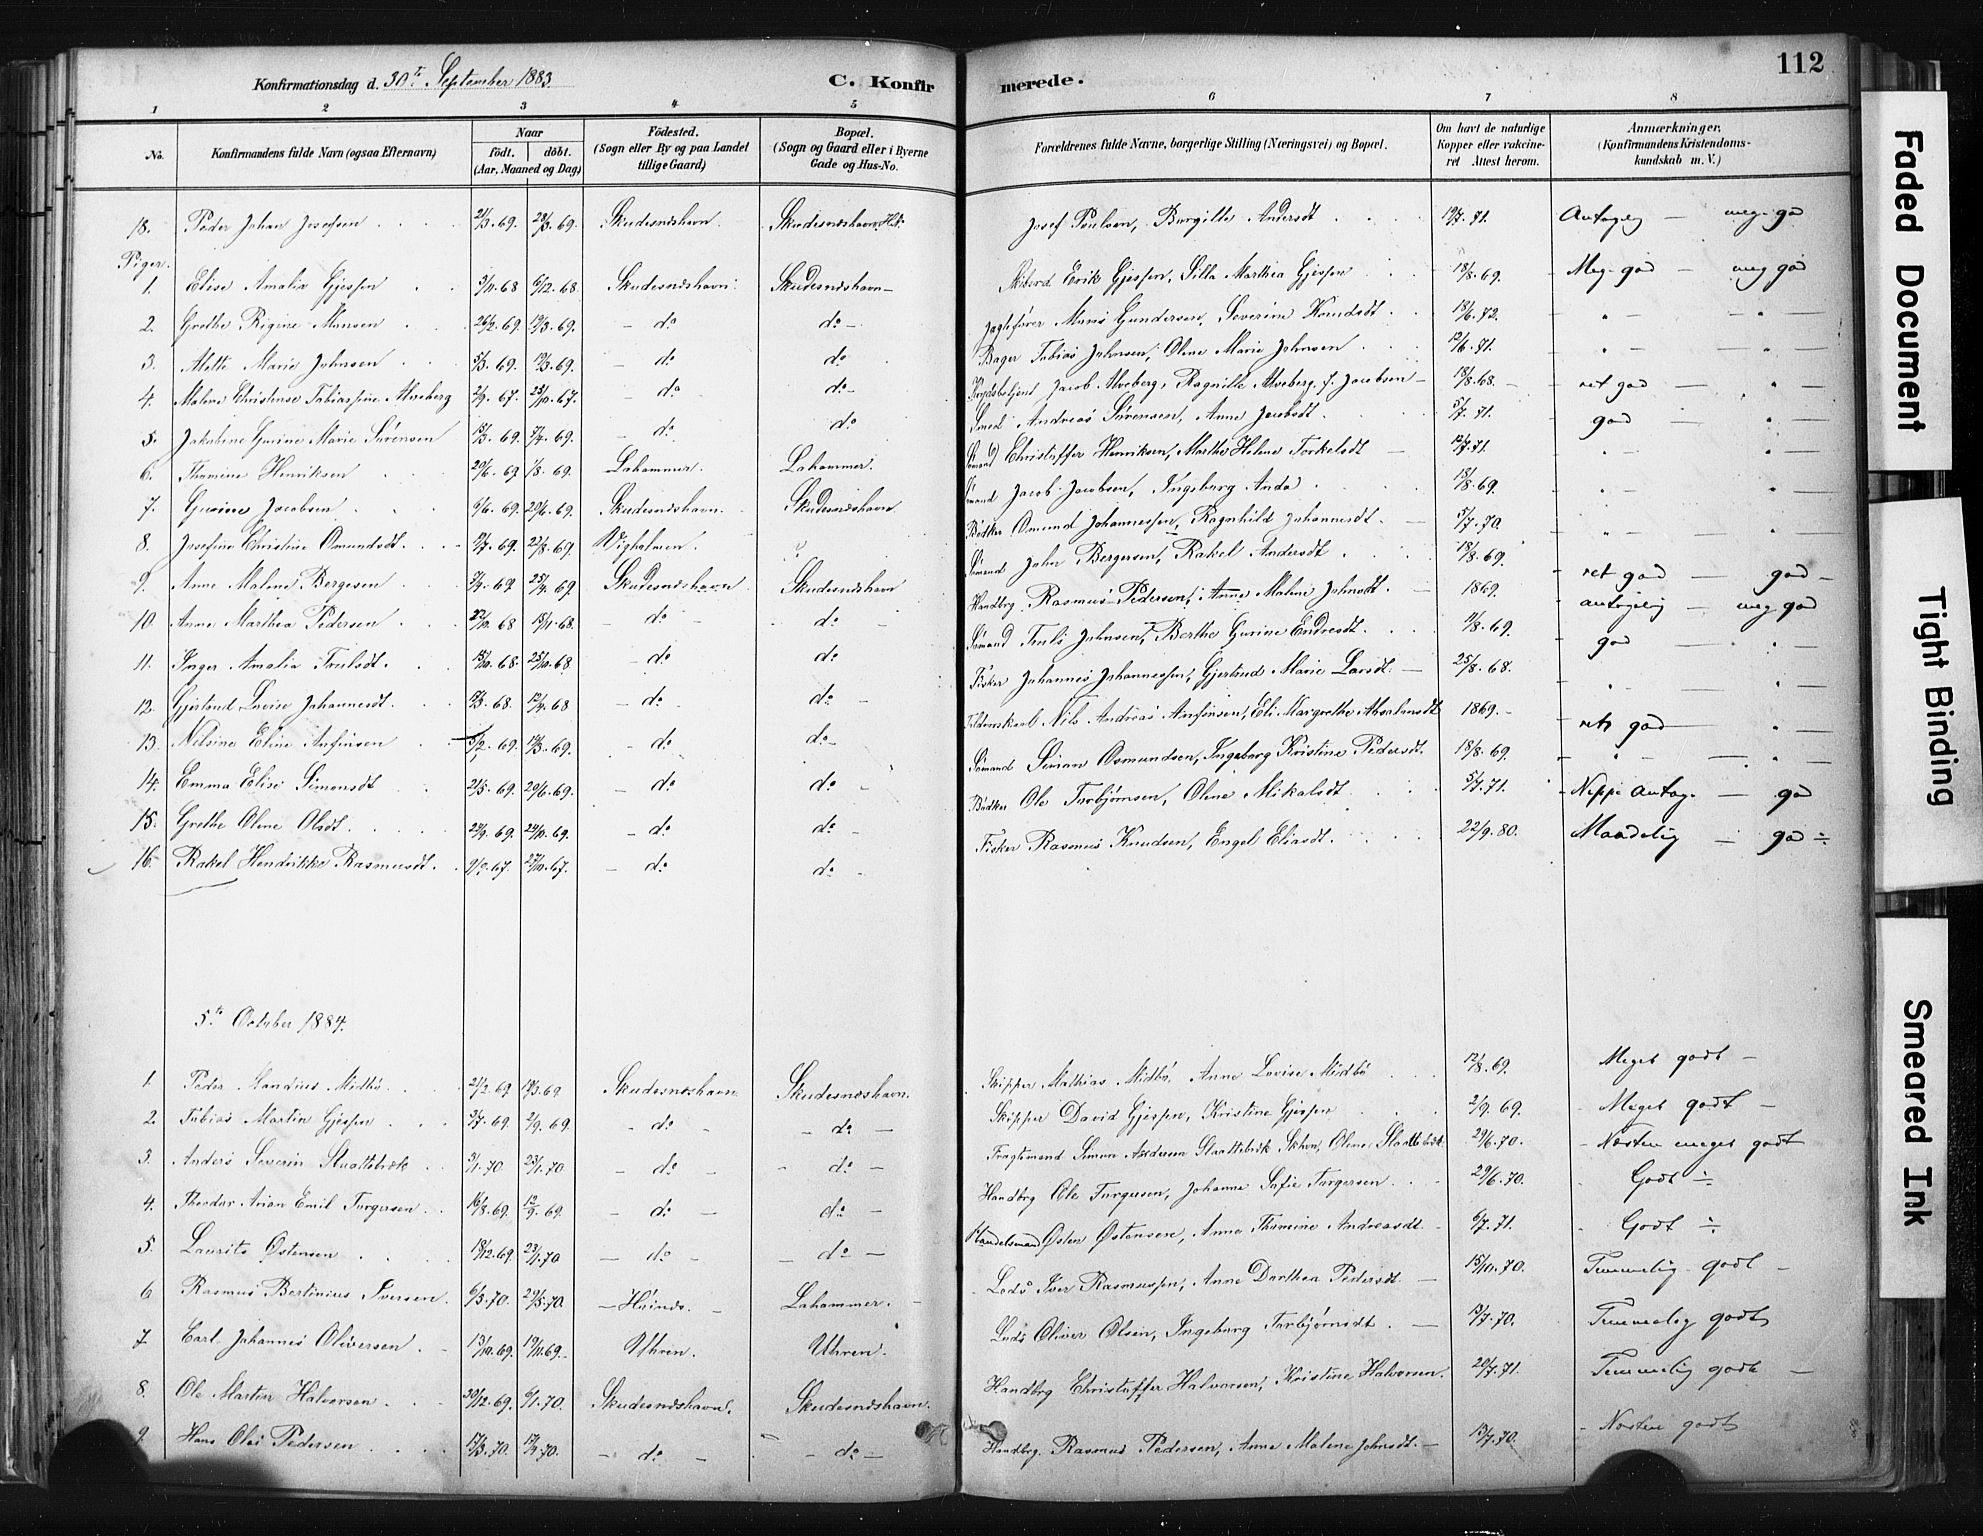 112
Konfirmationsdag d. 30te September 1883
C. Konfirmerede.
1 2 3 4 5 6 7 8
No.
Konfirmandens fulde Navn (ogsaa Efternavn)
Naar
födt. döbt.
(Aar, Maaned og Dag)
Födested.
(Sogn eller By og paa Landet tillige Gaard)
Bopæl.
(Sogn og Gaard eller i Byerne Gade og Hus-No.
Forældrenes fulde Navne, borgerlige Stilling (Næringsvei) og Bopæl.
Om havt de naturlige Kopper eller vakcineret Attest herom.
Anmærkninger.
(Konfirmandens Kristendomskundskab m. V.)
18. Peder Johan Josefsen 21/3. 69. 28/3. 69. Skudesneshavn Skudesneshavn Josef Poulsen, Burgitte Andersdt 71. Antagelig — meg. god
Piger.
1. Elise Amalia Gjessen 3/11. 68 6/12. 68. Skudesneshavn Skudesneshavn — Erik Gjessen, Silla Marthea Gjessen 18/8. 69. Meg. god — meg god
2. Grethe Regine Monsen 26/2. 69. 19/3. 69. — do do — Jagtefører Mons Gundersen, Severine Knudsdt 13/6. 72. " — " —
3. Mette Marie Johnsen 5/3. 69. 19/3. 69. — do do Bager Tobias Johnsen, Oline Marie Johnsen 12/6. 71. " — " —
4. Malene Christense Tobiassine Alveberg 2/9. 67. 25/10. 67. — do do — Jacob Alveberg, Ragnille Alveberg f. Jacobsen 18/8. 68. ret god — " —
5. Jakobine Gurine Marie Sörensen 15/3. 69. 7/4. 69. — do do Smed Andreas Sörensen, Anne Jacobsdt. 5/7. 71. god — " —
6. Thomine Henriksen 20/6. 69 1/8. 69. Lahammer. Lahammer. Sömand Christoffer Henriksen, Marthe Helene Torkelsdt 12/7. 71. " — " —
7. Gurine Jacobsen 6/6. 69. 20/6. 69. Skudesneshavn. Skudesneshavn Sömand Jacob Jacobsen, Ingeborg Anda 18/8. 69. " — " —
8. Josefine Christine Omundsdt. 12/7. 69. 22/8. 69. Vigholmen. Bödker Omund Johannessen, Ragnhild Johannesdt. 5/7. 70. " — " —
9. Anne Maline Bergesen 3/4. 69 25/4. 69. Skudesneshavn Skudesneshavn Sömand John Bergersen, Rakel Andersdt 18/8. 69. ret god — god —
10. Anne Marthea Pedersen 27/10. 68 15/11. 68. — do do Handbrg. Rasmus Pedersen, Anne Maline Johnsdt. 1869. antagelig — meg god
11. Inger Amalia Trulsdt. 15/10. 68. 25/10. 68. — do do Sömand Truls Johnsen, Berthe Gurine Endresdt. 11/8. 69. god — " —
12. Gjertrud Lovise Johannesdt. 17/3. 68. 12/4. 68 — do do Fisker Johannes Johannessen, Gjertrud Marie Larsdt. 25/8. 68. " — " —
13. Nilsine Eline Anfinsen 5/2. 69. 19/3. 69. — do do Nils Andreas Anfinsen, Eli Margrethe Absalonsdt 1869. — ret god — " —
14. Emma Elise Simonsdt 21/5. 69. 20/6. 69. — do do Sömand Simon Osmundsen, Ingeborg Kristine Pedersdt. 18/8. 69. " — " —
15. Grethe Oline Olsdt. 29/9. 69. 24/10. 69. — do do — Bödker Ole Torbjörnsen, Oline Mikalsdt 5/7. 71. Neppe antag. — god
16. Rakel Hendrikke Rasmusdt. 9/9. 67. 27/10. 67. — do do — Fisker Rasmus Knudsen, Engel Eliasdt. 22/9. 80. Maadelig — god ÷
5te October 1884.
1. Peder Mandius Midbö 21/2. 69 19/3. 69 Skudesneshavn Skudesneshavn. Skipper Mathias Midbö, Anne Lovise Midbö 12/8. 69. Meget godt —
2. Tobias Martin Gjessen 3/7. 69. 2/9. 69. — do — — do — Skipper David Gjessen, Kristine Gjessen 2/9. 69. Meget godt —
3. Anders Severin Slaattebrek 3/1. 70 23/1. 70 — do — — do — Fragtemand Simon Andersen Slaattebrök Skhvn, Oline Slaattebrök 29/6. 70. Næsten meget godt
4. Theodor Arian Emil Torgersen 16/8. 69. 12/9. 69. — do — do — Handbrg Ole Torgersen, Johanne Sofie Torgersen 29/6. 70. Godt ÷
5. Laurits Östensen 18/12. 69. 23/1. 70 — do — do — Handelsmand Östen Östensen, Anne Thomine Andreasdt. 6/7. 71. Godt ÷
6 Rasmus Bertinius Iversen 6/3. 70. 29/5. 70. — Hvinds. — Lahammer. Lods Iver Rasmussen, Anne Dorthea Pedersdt. 15/10. 70. Temmelig godt —
7. Carl Johannes Oliversen 13/10. 69. 19/11. 69. Uhren. Uhren. Lods Oliver Olsen, Ingeborg Torbjörnsdt. 13/7. 70. Temmelig godt
8. Ole Martin Halvorsen 30/12. 69. 6/1. 70. Skudesneshavn. Skudesneshavn. Handbrg Christoffer Halvorsen, Kristine Halvorsen. 20/7. 71. Temmelig godt —
9. Hans Olai Pedersen 17/3. 70. 17/4. 70. — do — — do — Handbrg. Rasmus Pedersen, Anne Malene Johnsdt. — 13/7. 70. Næsten godt
Faded Document
Tight Binding
Smeared Ink